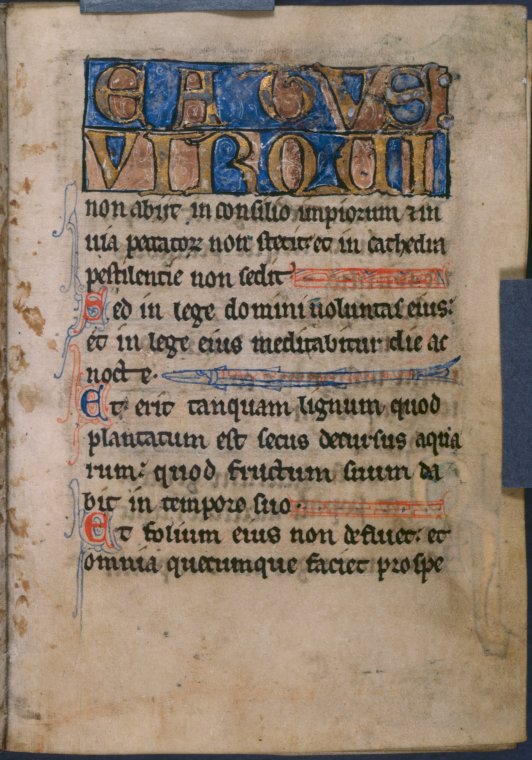 EATUS
VIR QUI
non abiit in consilio impiorum ⁊ in
uia peccatoꝝ non stetit et in cathedra
pestilentie non sedit
Sed in lege domini uoluntas eius:
et in lege eius meditabitur die ac
nocte.
Et erit tanquam lignum quod
plantatum est secus decursus aqua
rum: quod fructum suum da
bit in tempore suo.
Et folium eius non defluet: et
omnia quecumque faciet prospe